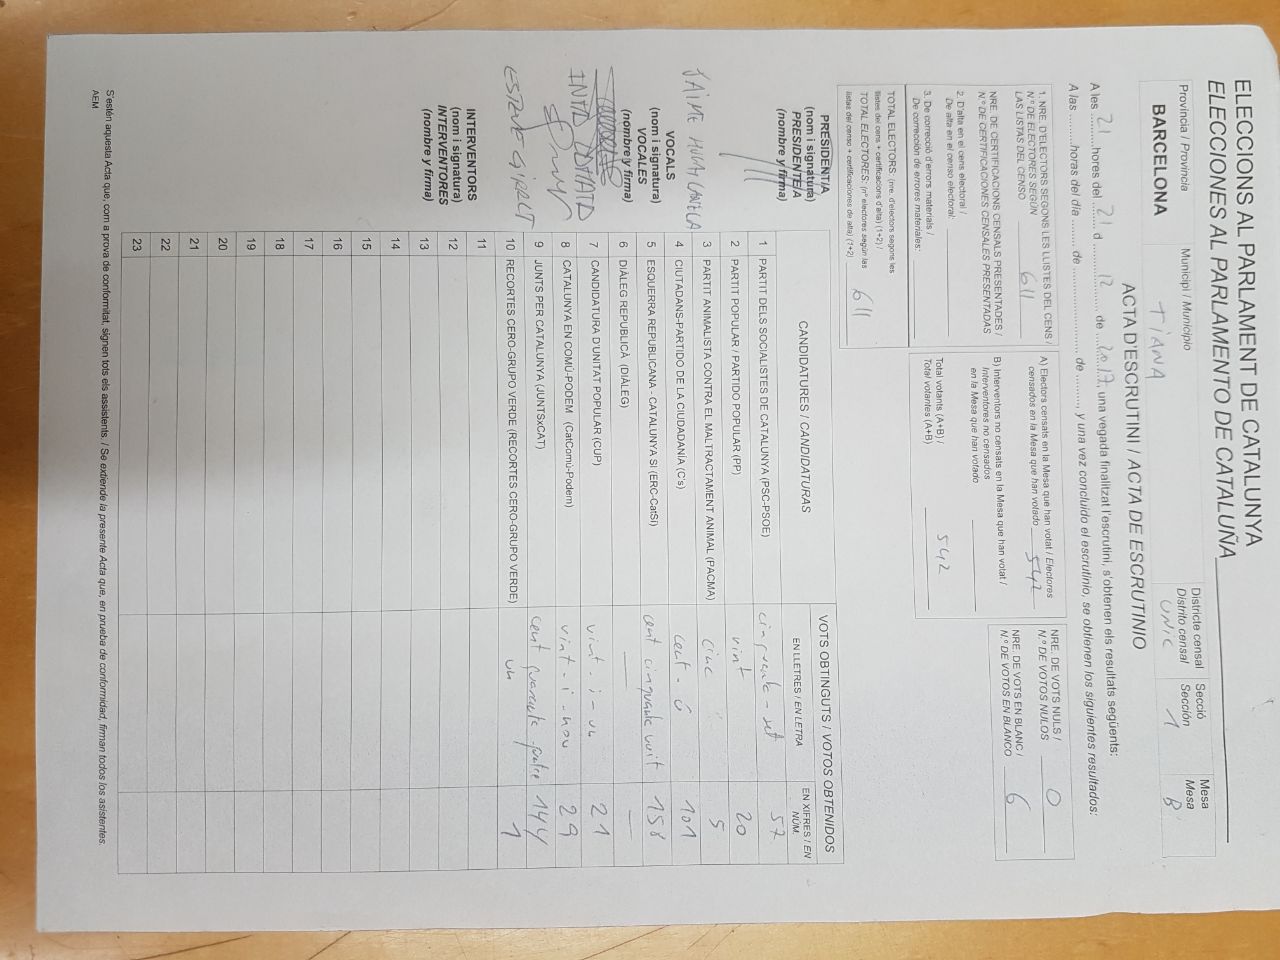 ELECCIONS AL PARLAMENT DE CATALUNYA
ELECCIONES AL PARLAMENTO DE CATALUÑA
Província / Provincia
BARCELONA
Municipi / Municipio
TIANA
Districte censal
Distrito censal
UNIC
Secció
Sección
1
Mesa
Mesa
B
ACTA D'ESCRUTINI / ACTA DE ESCRUTINIO
A les 21 hores del 21 d 12 de 2017, una vegada finalitzat l'escrutini, s'obtenen els resultats següents:
A las ......... horas del día ......... de ......... de ........., y una vez concluido el escrutinio, se obtienen los siguientes resultados:
1. NRE. D'ELECTORS SEGONS LES LLISTES DEL CENS /
N.º DE ELECTORES SEGÚN
LAS LISTAS DEL CENSO 611
NRE. DE CERTIFICACIONS CENSALS PRESENTADES /
N.º DE CERTIFICACIONES CENSALES PRESENTADAS
2. D'alta en el cens electoral /
De alta en el censo electoral:
3. De correcció d'errors materials /
De corrección de errores materiales:
TOTAL ELECTORS: (nre. d'electors segons les
llistes del cens + certificacions d'alta) (1+2) /
TOTAL ELECTORES: (nº electores según las
listas del censo + certificaciones de alta) (1+2) 611
A) Electors censats en la Mesa que han votat / Electores
censados en la Mesa que han votado 542
B) Interventors no censats en la Mesa que han votat /
Interventores no censados
en la Mesa que han votado
Total votants (A+B) /
Total votantes (A+B) 542
NRE. DE VOTS NULS /
N.º DE VOTOS NULOS 0
NRE. DE VOTS EN BLANC /
N.º DE VOTOS EN BLANCO 6
PRESIDENT/A
(nom i signatura)
PRESIDENTE/A
(nombre y firma)
JAIME
VOCALS
(nom i signatura)
VOCALES
(nombre y firma)
INTERVENTORS
(nom i signatura)
INTERVENTORES
(nombre y firma)
CANDIDATURES / CANDIDATURAS
VOTS OBTINGUTS / VOTOS OBTENIDOS
EN LLETRES / EN LETRA
EN XIFRES / EN NÚM.
1 PARTIT DELS SOCIALISTES DE CATALUNYA (PSC-PSOE) cinquanta-set 57
2 PARTIT POPULAR / PARTIDO POPULAR (PP) vint 20
3 PARTIT ANIMALISTA CONTRA EL MALTRACTAMENT ANIMAL (PACMA) cinc 5
4 CIUTADANS-PARTIDO DE LA CIUDADANÍA (C's) cent - ú 101
5 ESQUERRA REPUBLICANA - CATALUNYA SÍ (ERC-CatSí) cent cinquanta vuit 158
6 DIÀLEG REPUBLICÀ (DIÀLEG) — —
7 CANDIDATURA D'UNITAT POPULAR (CUP) vint-i-un 21
8 CATALUNYA EN COMÚ-PODEM (CatComú-Podem) vint-i-nou 29
9 JUNTS PER CATALUNYA (JUNTSxCAT) cent quaranta quatre 144
10 RECORTES CERO-GRUPO VERDE (RECORTES CERO-GRUPO VERDE) un 1
11
12
13
14
15
16
17
18
19
20
21
22
23
S'estén aquesta Acta que, com a prova de conformitat, signen tots els assistents. / Se extiende la presente Acta que, en prueba de conformidad, firman todos los asistentes.
AEM